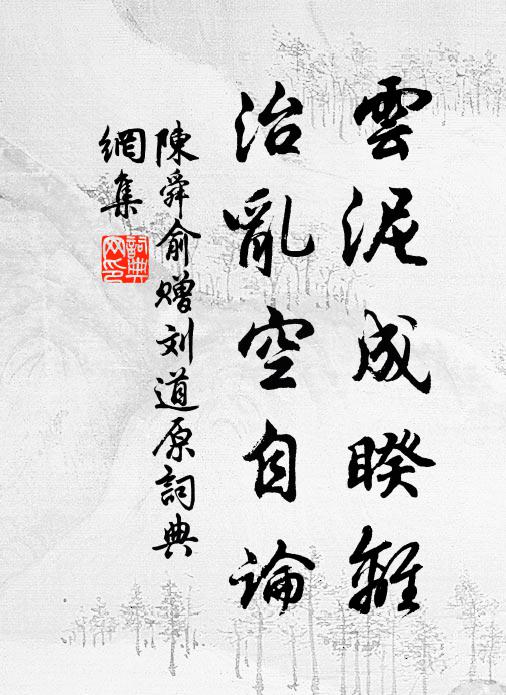 雲泥成睽離
治亂空自論
陳舜俞赠刘道原詞典
網集
詞典
网印